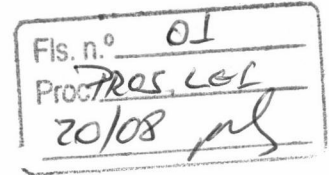 Fls. n.º 01
Proc. PROJ. LEI
20/08